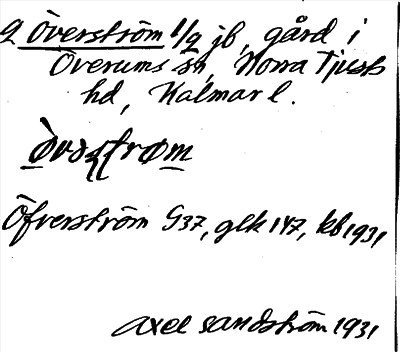 q Överström 1/2 jb, gård i
Överums sn, Norra Tjusts
hd, Kalmar l.
Öfverström G37, glk 147, kb 1931
Axel Sandström 1931